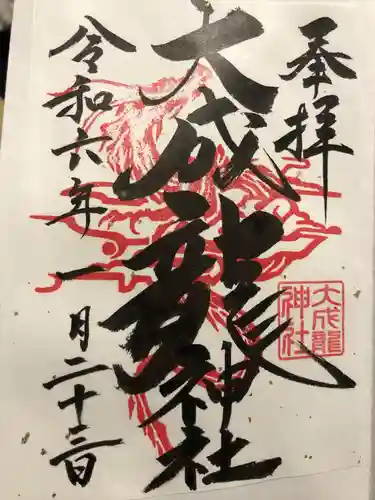 奉拝
大成龍神社
令和六年一月二十三日
大成龍
神社